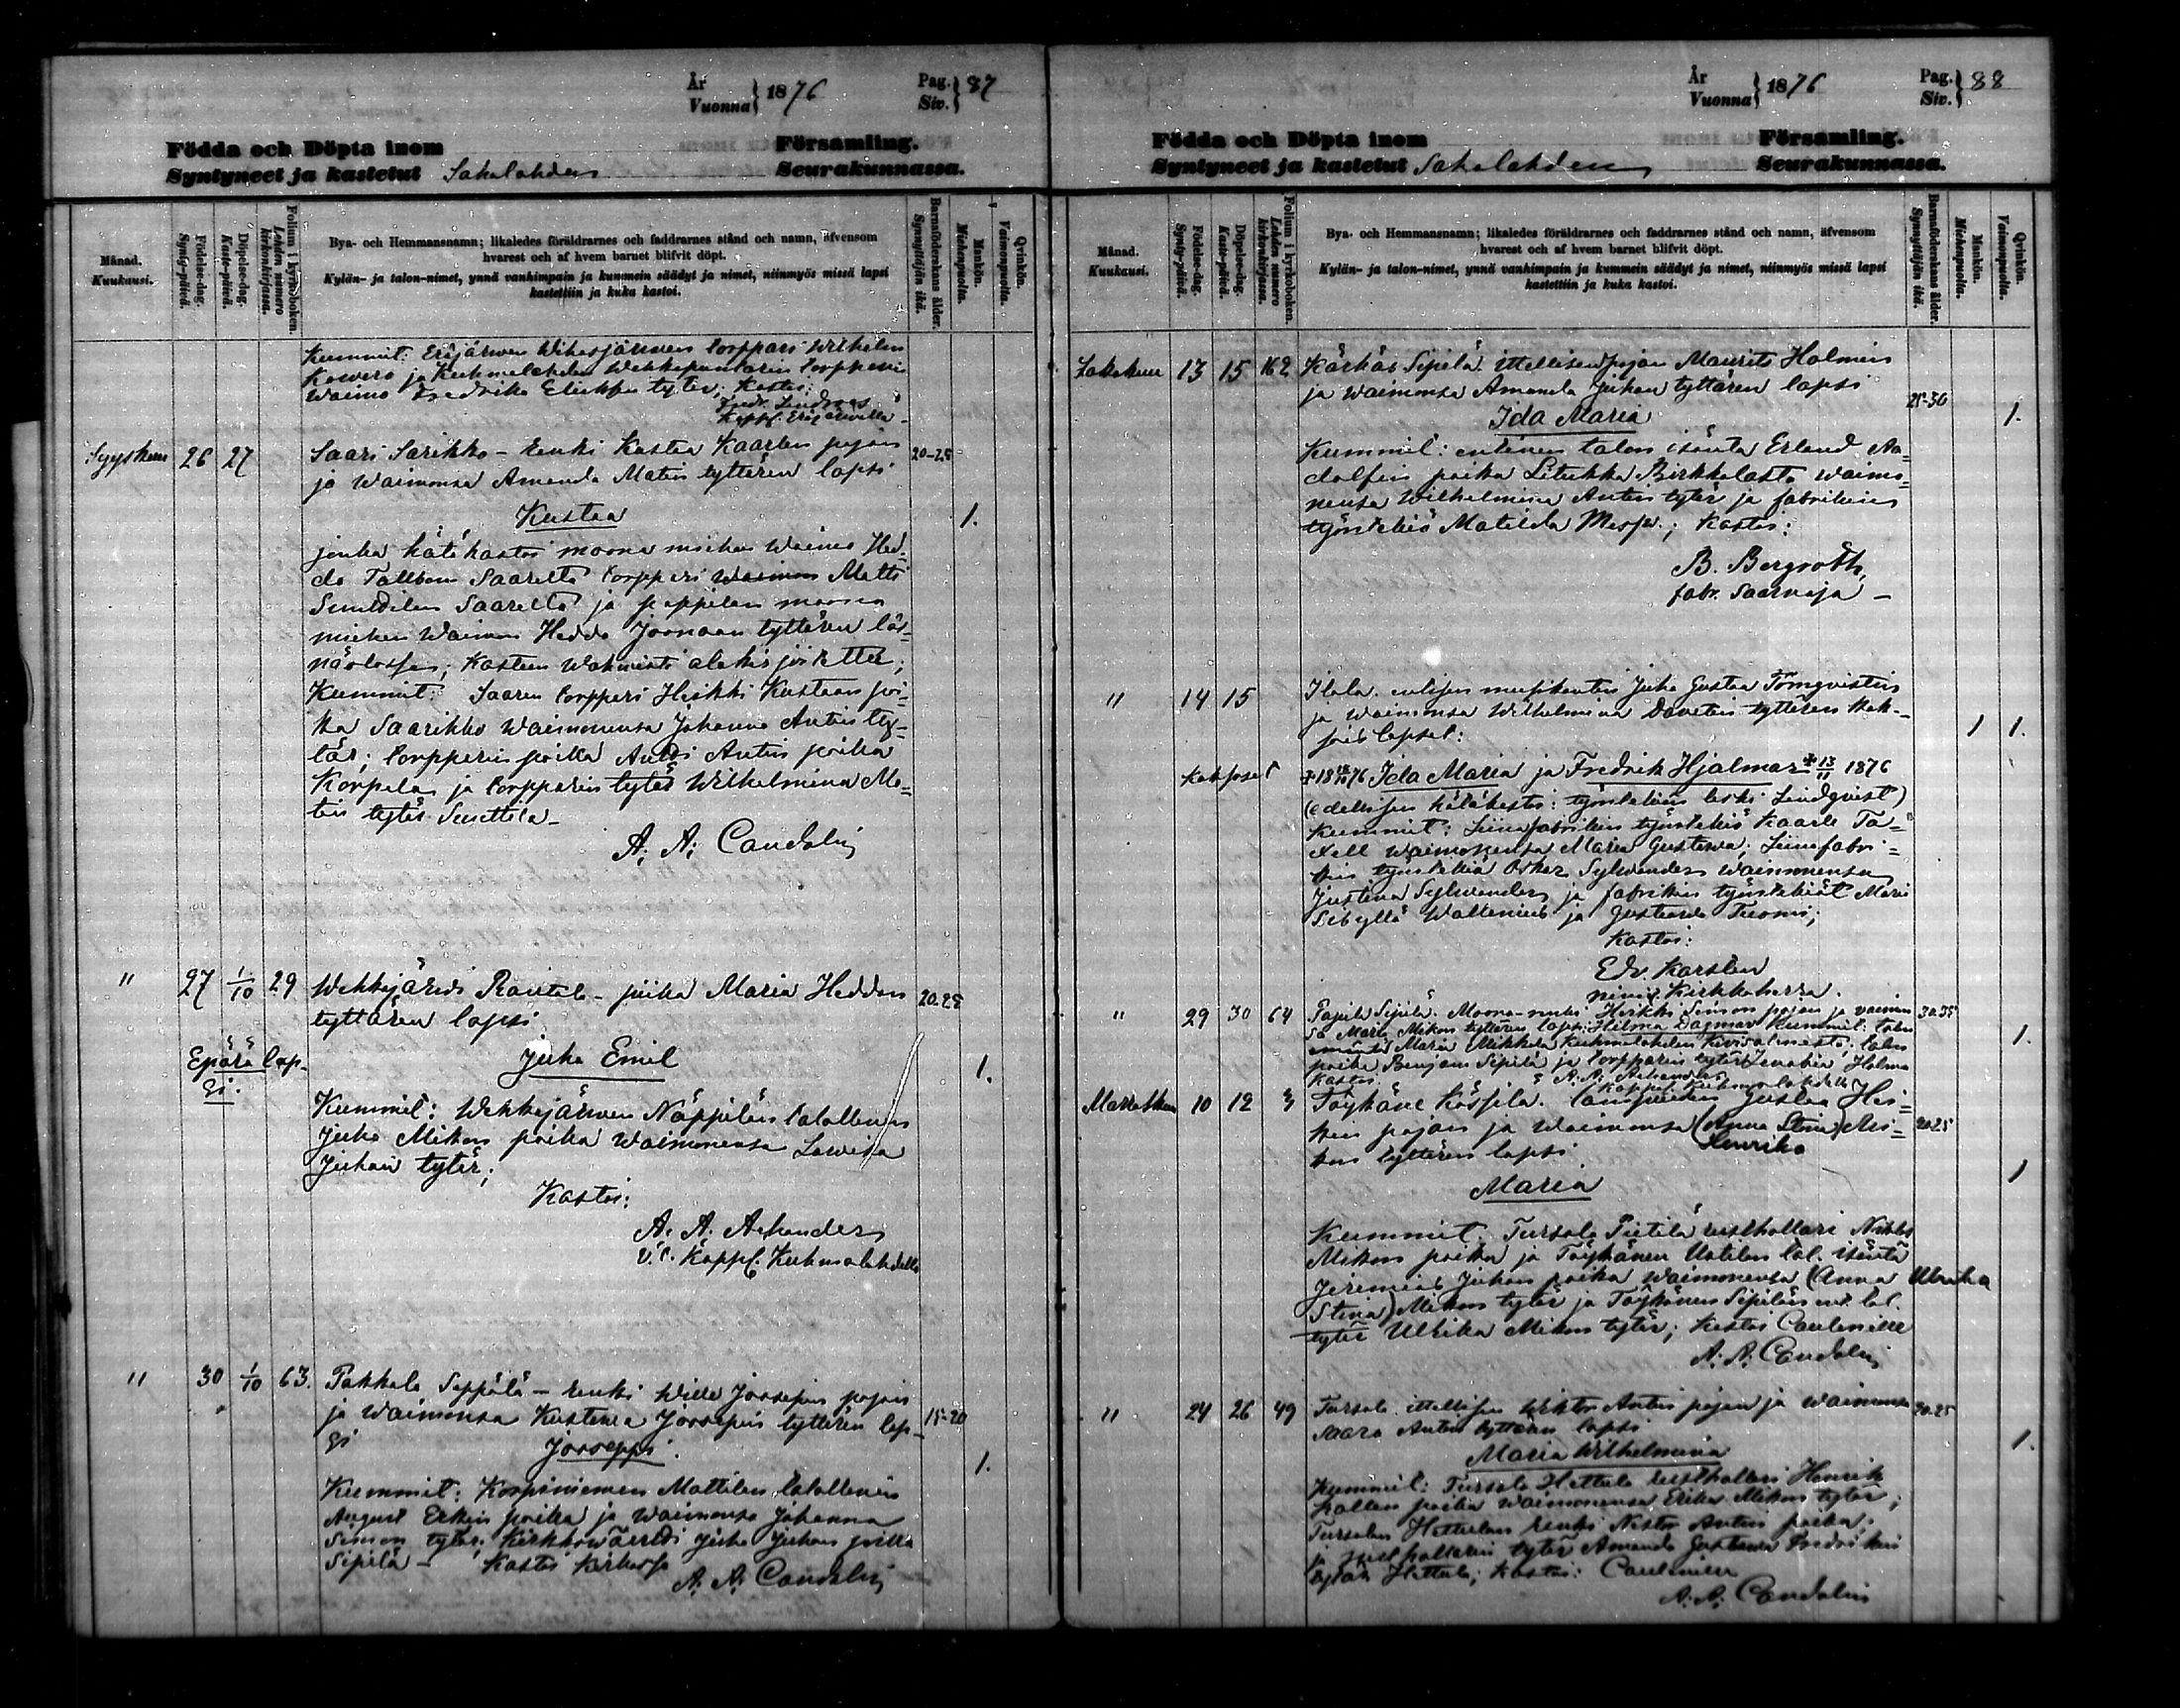 År
Vuonna } 1876 Pag.
Siv. } 87
Födda och Döpta inom Församling.
Syntyneet ja kastetut Sahalahden Seurakunnassa.
Månad.
Kuukausi.
Födelse-dag.
Synty-päivä.
Döpelse-dag.
Kaste-päivä.
Folium i kyrkoboken.
Lehden numero
kirkonkirjassa.
Bya- och Hemmansnamn; likaledes föräldrarnes och faddrarnes stånd och namn, äfvensom
hvarest och af hvem barnet blifvit döpt.
Kylän- ja talon-nimet, ynnä vanhimpain ja kummein säädyt ja nimet, niinmyös missä lapsi
kastettiin ja kuka kastoi.
Barnaföderskans ålder.
Synnyttäjän ikä.
Mankön.
Miehenpuolta.
Qvinkön.
Vaimonpuolta.
Kummit: Eräjärwen torppari Wilhelm
ja Kuhmalahden torpparin
waimo Fredrika tytär; Kastoi:
Kappl. Eräjärwellä
Syyskuu 26 27 Saari Sarikko - Renki Kustaa Kaarlen pojan 20-25
ja Waimonsa Amanda Matin tyttären lapsi
Kustaa 1.
jonka hätäkastoi muona miehen Waimo Hed-
da Tallbom Saarelta torpperi Matti
Saarelta ja pappilan muona
miehen Waimon Hedda Joonaan tyttären läs-
näolossa; Kasteen
Kummit: Saaren torpperi Heikki Kustaan poi-
ka Saarikko Waimonensa Johanna Antin ty-
tär; torpperin poika Antti Antin poika
Korpela ja torpparin tytär Wilhelmina Ma-
tin tytär
A; A; Candolin
" 27 1/10 29 Wehkajärwi Rautala - piika Maria Heddan 20-25
tyttären lapsi
Epärä lap-
si.
Juho Emil 1.
Kummit: Wehkajärwen Näppilän
Juho Mikon poika Waimonensa Lowisa
Juhan tytär;
Kastoi:
A. A. Arhander
v.t. Kappl. Kuhmalahdella
" 30 1/10 63. Pakkala Seppälä - Renki Wille Joosepin pojan
ja Waimonsa Kustawa Joosepin tyttären lap- 15-20
si Jooseppi. 1.
Kummit: Korpiniemen Mattilan
August Erkin poika ja waimonsa Johanna
Simon tytär; Kirkkowäärti Juho Juhan poika
Sipilä - Kastoi Kirkossa
A; A; Candolin
År
Vuonna } 1876 Pag.
Siv. } 88
Födda och Döpta inom Församling.
Syntyneet ja kastetut Sahalahden Seurakunnassa.
Månad.
Kuukausi.
Födelse-dag.
Synty-päivä.
Döpelse-dag.
Kaste-päivä.
Folium i kyrkoboken.
Lehden numero
kirkonkirjassa.
Bya- och Hemmansnamn; likaledes föräldrarnes och faddrarnes stånd och namn, äfvensom
hvarest och af hvem barnet blifvit döpt.
Kylän- ja talon-nimet, ynnä vanhimpain ja kummein säädyt ja nimet, niinmyös missä lapsi
kastettiin ja kuka kastoi.
Barnaföderskans ålder.
Synnyttäjän ikä.
Mankön.
Miehenpuolta.
Qvinkön.
Vaimonpuolta.
Lokakuu 13 15 162 Kärkäs Sipilä. ittellisen pojan Maurits Holmin
ja waimonsa Amanda Juhan tyttären lapsi 25-30
Ida Maria 1.
Kummit: entinen talon isäntä Erland Aa-
dolfin poika Liukka Birkkalasta waimo-
nensa Wilhelmina Antin tytär ja fabrikin
työntekiä Matilda; Kastoi:
B. Bergroth
fabr. saarnaja -
" 14 15 Ilola. entisen musikantin Juho Gustaa Törnqvistin
ja Waimonsa Wilhelmina Davetin tyttären kak- 1 1.
soislapset:
Kaksoset Ida Maria ja Fredrik Hjalmar 13/11 1876
(edellisen hätäkastoi: työntekiän leski Lindqvist)
Kummit: Liinafabrikin työntekiä Kaarle Ta-
xell waimonensa Maria Gustawa; Liinafabri-
kin työntekiä Oskar Sylwander waimonensa
Justina Sylwander ja fabrikin työntekiät Maria
Sibylla Wallenius ja Gustawa Tuomi;
Kastoi:
Edv. Karsten
nimis. Kirkkoherra.
" 29 30 64 Sipilä. Moona-renki Heikki Simon pojan ja waimon- 30-35
sa Maria Mikon tyttären lapsi Hilma Dagmar Kummit: talon
emäntä Maria Mikkola Kuhmalahden; talon
poika Benjam Sipilä ja torpparin tytär Holma 1.
Kastoi. A. A. Arhander
Kappl. Kuhmalahdella
Marraskuu 10 12 3 Töyhäne Kössilä. Gustaa Hei-
kin pojan ja Waimonsa (Anna Stina) Mi- 20-25
kon tyttären lapsi Henrika
Maria 1
Kummit: Tursola Pietilä rusthollari
Mikon poika ja Töyhänen Uotilan tal. isäntä
Jeremias Juhan poika waimonensa (Anna Ulrika
Stina) Mikon tytär ja Töyhänen Sipilän ent. tal.
tytär Ulrika Mikon tytär; Kastoi
A. A. Candolin
" 24 26 49 Tursola ittellisen Wiktor Antin pojan ja waimonsa 20-25
Saara Antin tyttären lapsi
Maria Wilhelmina 1.
Kummit: Tursola Hettula rusthollari Henrik
Kallen poika waimonensa Erika Mikon tytär;
Tursolan Hettulan renki Nestor Antin poika;
ja rusthollarin tytär Amanda Gustawa Fredrikin
tytär Hettula; Kastoi:
A. A. Candolin